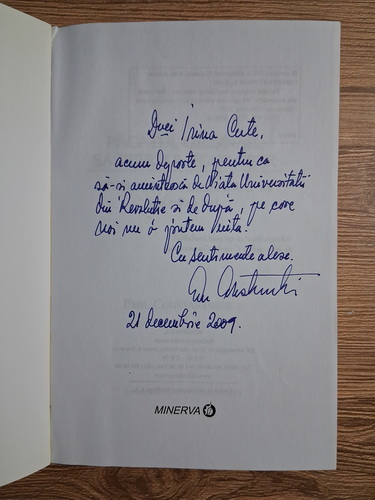 Dnei Irina Cute,
acum departe, pentru ca
să-și amintească de Viața Universității
din Revoluție și de după, pe care
noi nu o putem uita.
Cu sentimente alese.
21 decembrie 2009.
MINERVA